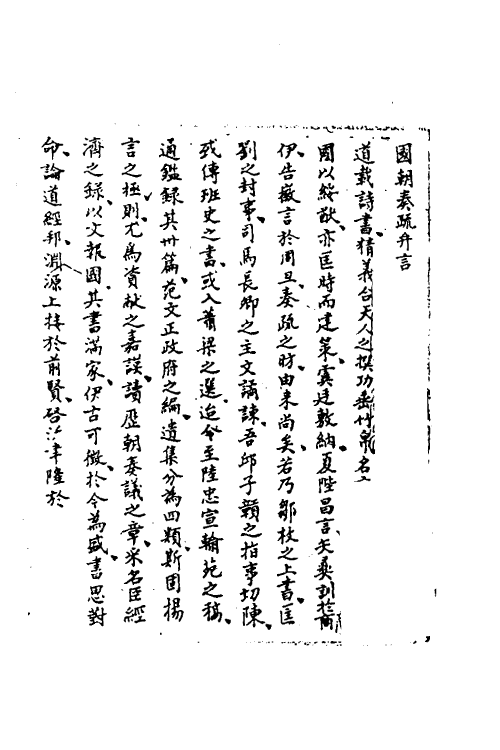 國朝奏疏弁言
道載詩書精義台天人之撰功垂竹帛名
周以綏猷亦匡時而建策虞廷敷納夏陛昌言矢奏訓於商
伊告微言於周旦奏疏之昉由来尚矣若乃鄒枚之上書匡
劉之封事司馬長卿之主文譎諫吾邱子贛之指事切陳
或傳班史之書或入蕭梁之選迨今至陸忠宣翰苑之稿
通鑑録其卅篇范文正政府之編遺集分為四類斯固揚
言之極則尤為資献之嘉謨讀歷朝奏議之章采名臣經
濟之録以文報國其書滿家伊古可徵於今為盛書思對
命論道經邦淵源上接於前賢啓沃聿隆於